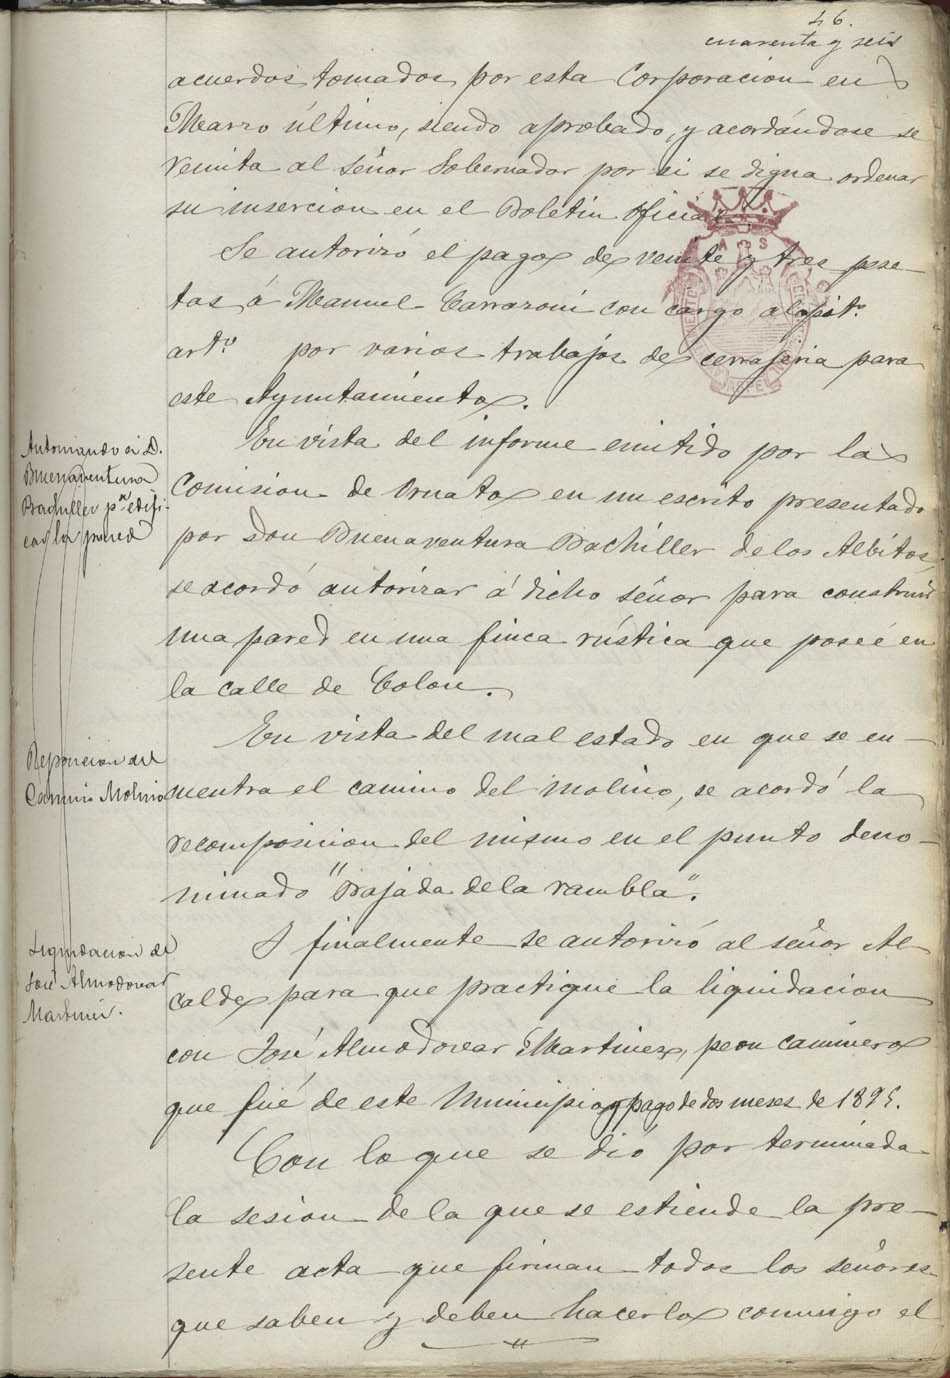 46.
cuarenta y seis
acuerdos tomados por esta Corporacion en
Marzo último, siendo aprobado, y acordándose se
remita al Señor Gobernador por si se digna ordenar
su insercion en el Boletin Oficial.
Se autorizó el pago de veinte y tres pese-
tas á Manuel Carrazoni con cargo al capít.º
art.º por varios trabajos de cerrajeria para
este Ayuntamiento.
Autorizando a D.
Buenaventura
Bachiller pª edifi-
car la pared
En vista del informe emitido por la
Comision de Ornato en un escrito presentado
por Don Buenaventura Bachiller de los Albitos,
se acordó autorizar á dicho Señor para construir
una pared en una finca rústica que posee en
la calle de Colon.
Reposicion del
Camino Molino
En vista del mal estado en que se en-
cuentra el camino del molino, se acordó la
recomposicion del mismo en el punto deno-
minado "Bajada de la rambla".
Liquidacion de
José Almodovar
Martinez.
Y finalmente se autorizó al señor Al-
calde para que practique la liquidacion
con José Almodovar Martinez, peon caminero
que fué de este Municipio y pago de dos meses de 1895.
Con lo que se dió por terminada
la sesion de la que se estiende la pre-
sente acta que firman todos los señores
que saben y deben hacerlo conmigo el